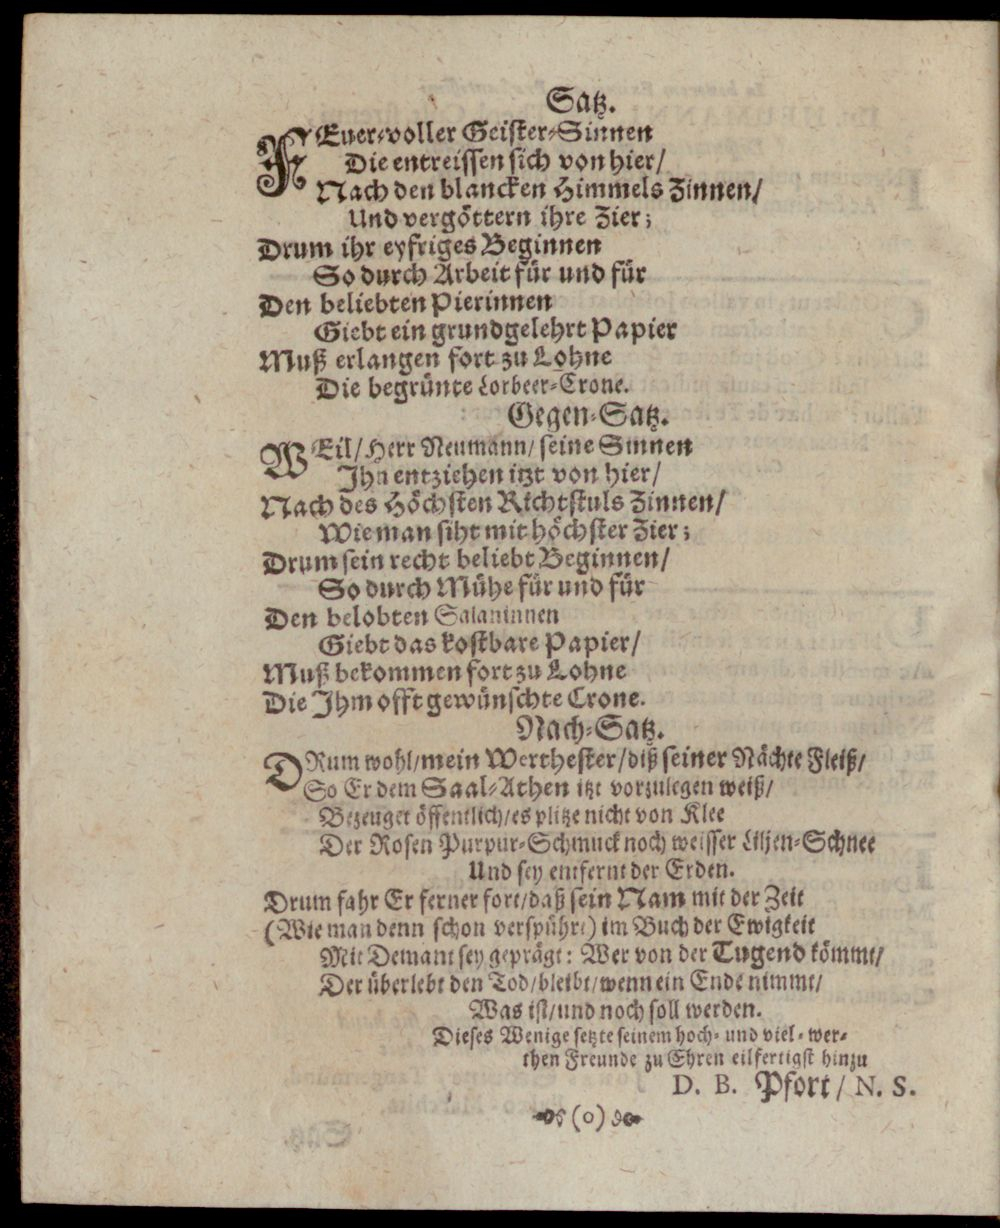 Satz.
FEuer-voller Geister-Sinnen
Die entreissen sich von hier/
Nach den blancken Himmels Zinnen/
Und vergöttern ihre Zier;
Drum ihr eyfriges Beginnen
So durch Arbeit für und für
Den beliebten Pierinnen
Giebt ein grundgelehrt Papier
Muß erlangen fort zu Lohne
Die begrünte Lorbeer-Crone.
Gegen-Satz.
WEil/ Herr Neumann/ seine Sinnen
Jhn entziehen itzt von hier/
Nach des Höchsten Richtstuls Zinnen/
Wie man siht mit höchster Zier;
Drum sein recht beliebt Beginnen/
So durch Mühe für und für
Den belobten Salaninnen
Giebt das kostbare Papier/
Muß bekommen fort zu Lohne
Die Jhm offt gewünschte Crone.
Nach-Satz.
DRum wohl/ mein Werthester/ diß seiner Nächte Fleiß/
So Er dem Saal-Athen itzt vorzulegen weiß/
Bezeuget öffentlich/ es plitze nicht von Klee
Der Rosen Purpur-Schmuck noch weisser Liljen-Schnee
Und sey entfernt der Erden.
Drum fahr Er ferner fort/ daß sein Nam mit der Zeit
(Wie man denn schon verspührt) im Buch der Ewigkeit
Mit Demant sey geprägt: Wer von der Tugend kömmt/
Der überlebt den Tod/ bleibt/ wenn ein Ende nimmt/
Was ist/ und noch soll werden.
Dieses Wenige setzte seinem hoch- und viel-wer-
then Freunde zu Ehren eilfertigst hinzu
D. B. Pfort/ N. S.
(o)